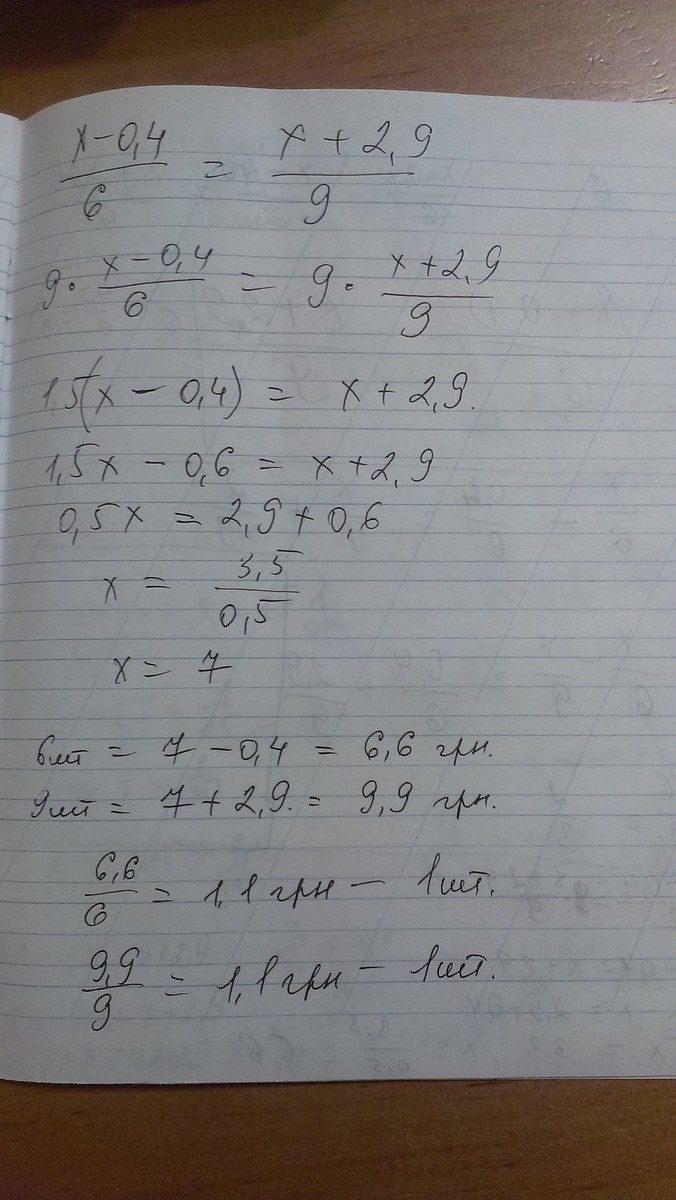 (x - 0,4)/6 = (x + 2,9)/9
9 · (x - 0,4)/6 = 9 · (x + 2,9)/9
1,5(x - 0,4) = x + 2,9.
1,5x - 0,6 = x + 2,9
0,5x = 2,9 + 0,6
x = 3,5/0,5
x = 7
6шт = 7 - 0,4 = 6,6 грн.
9шт = 7 + 2,9 = 9,9 грн.
6,6/6 = 1,1 грн - 1шт.
9,9/9 = 1,1 грн - 1шт.